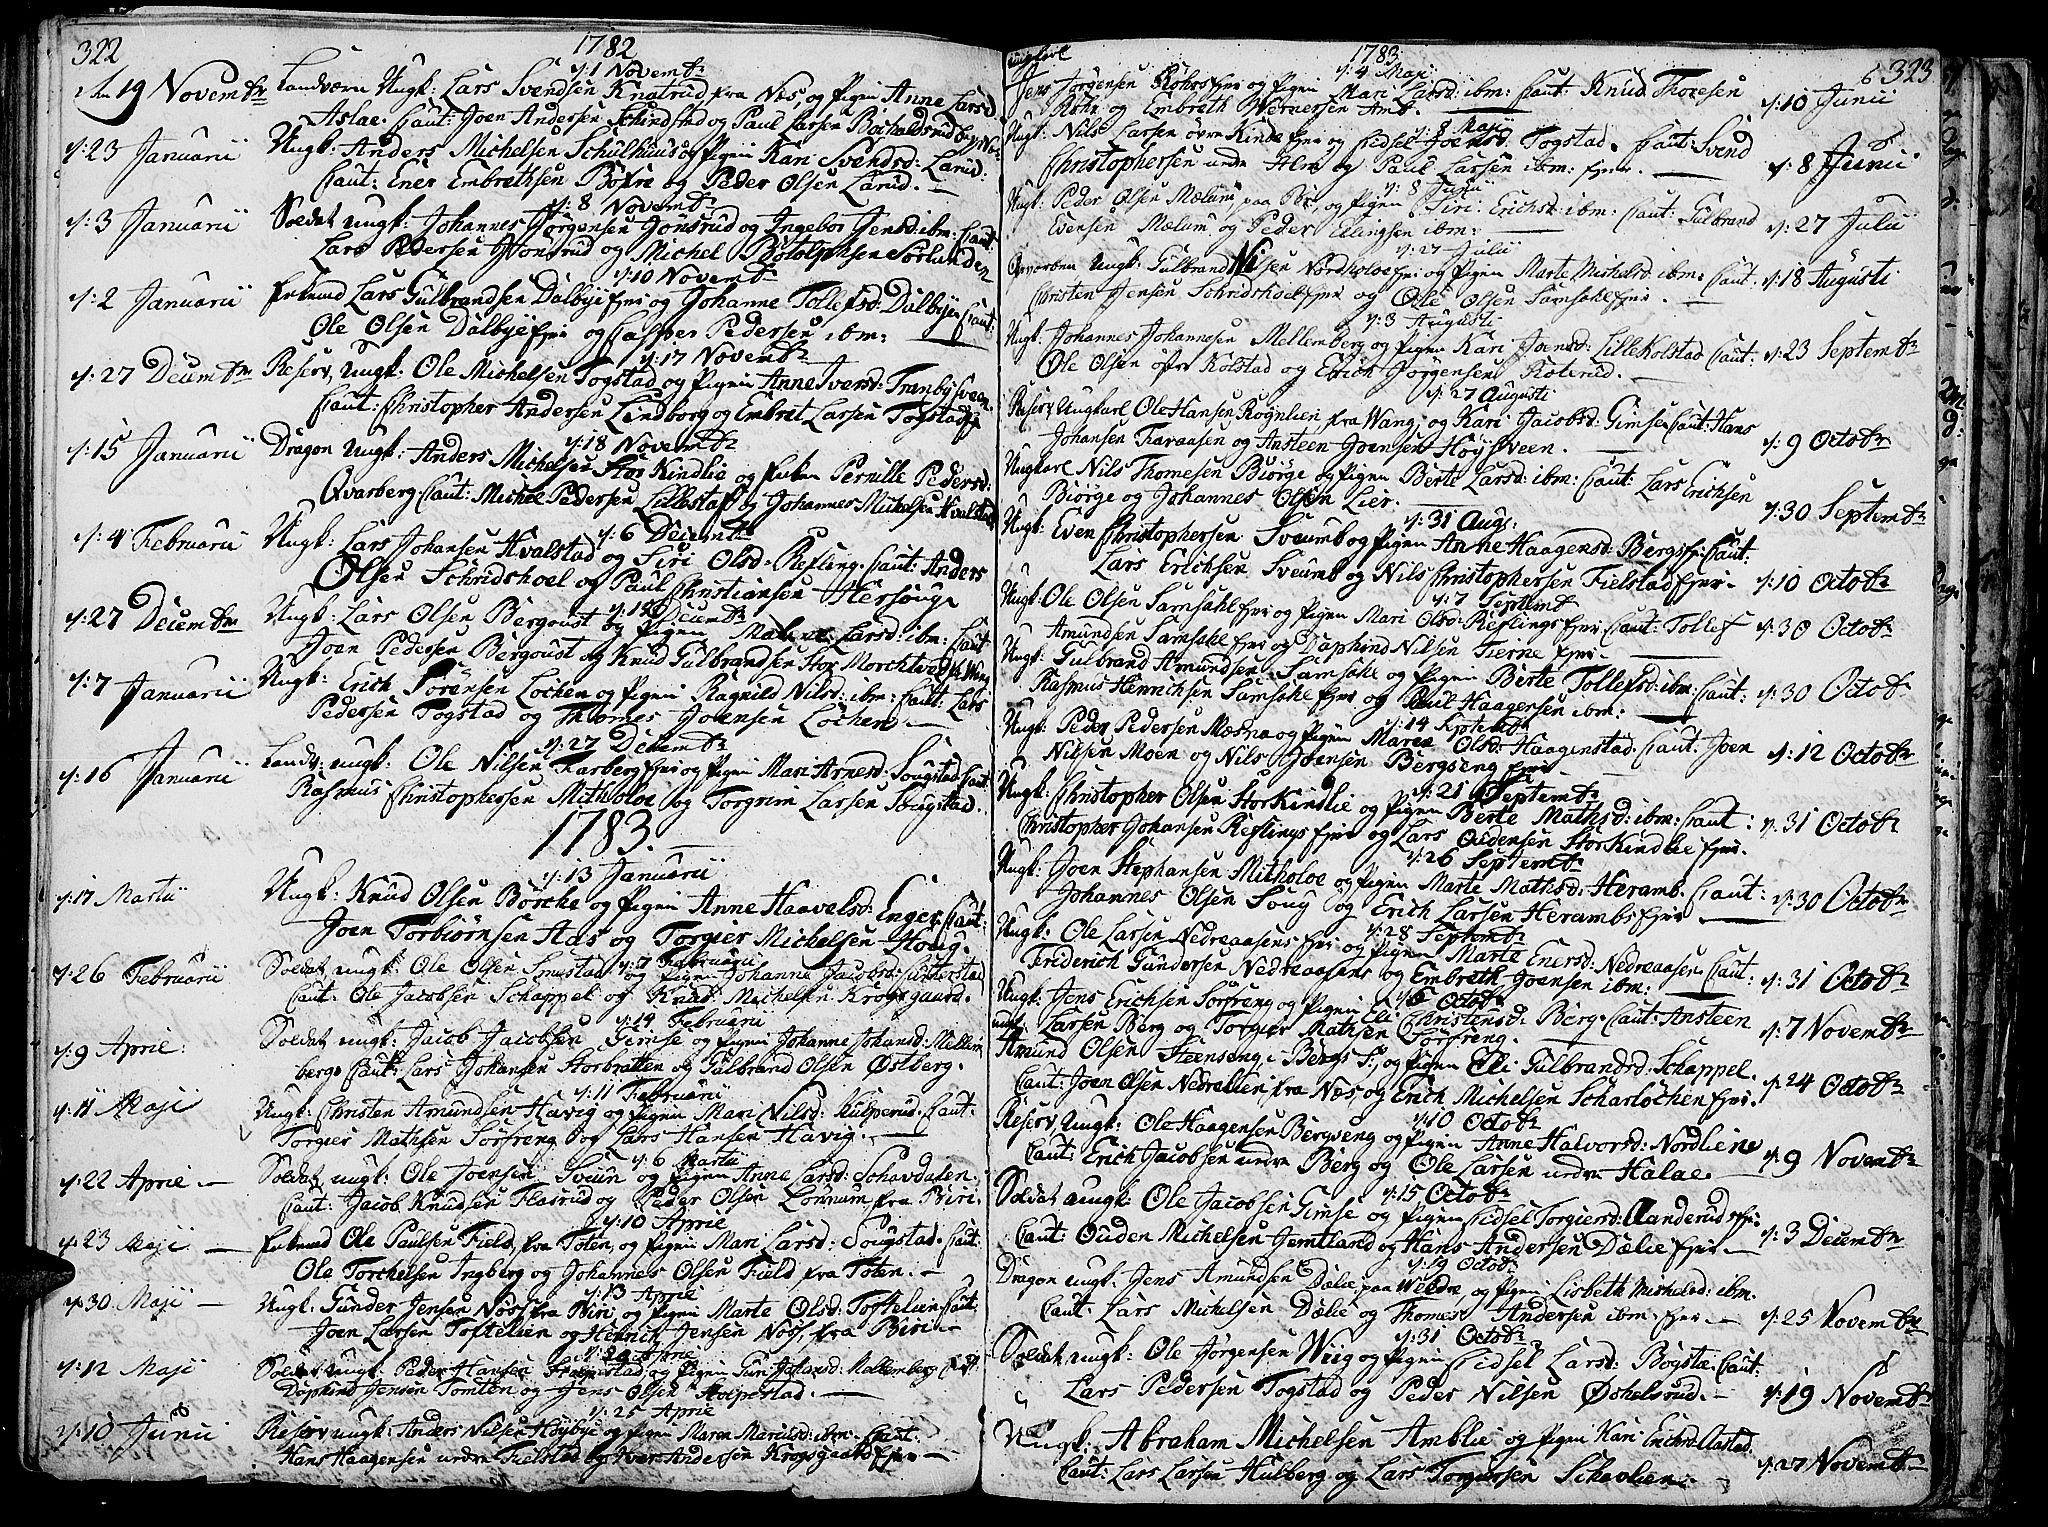 322
1782
d: 1 Novembr
19 Novembr Landværn Ungk: Lars Svendsen Knatrud fra Næs, og Pigen Anne Larsd:
Aslae. Caut: Joen Andersen og Paul Larsen
d: 23 Januarii Ungk: Anders Michelsen Schulhuus og Pigen Kari Svendsd: Larud.
Caut: Ener Embrethsen og Peder Olsen Larud.
d: 8 Novembr
d: 3 Januarii Soldat ungk: Johannes Jørgensen Jønsrud og Ingebor Jensd: ibm: Caut:
Lars Pedersen Jønsrud og Michel Botolphsen Sørlunden
d: 10 Novembr
d: 2 Januarii Enkemd Lars Gulbrandsen Dalbye Ejer og Johanne Tollefsd: Dalbyen Caut:
Ole Olsen Dalbye Ejer og Casper Pedersen ibm:
d: 17 Novembr
d: 27 Decembr Reserv, ungk: Ole Michelsen Togstad og Pigen Anne Iversd: Tranbysveen.
Caut: Christopher Andersen Lundborg og Embret Larsen Togstad
d: 18 Novembr
d: 15 Januarii Dragon ungk: Anders Michelsen Stor Kindlie og Enken Pernille Pedersd:
Qvarberg Caut: Michel Pedersen Lillestaf og Johannes Michelsen Hvalstad
d: 6 Decembr
d: 4 Februarii Ungk: Lars Johansen Hvalstad og Siri Olsd: Refling. Caut: Anders
Olsen Schridshoel og Paul Christiansen Hersoug
d: 27 Decembr Ungk: Lars Olsen Bergoust og Pigen Malene Larsd: ibm: Caut:
Joen Pedersen Bergoust og Knud Gulbrandsen Stor
d: 7 Januarii Ungk: Erich Sørensen Lochen og Pigen Ragnild Nilsd: ibm: Caut: Lars
Pedersen Togstad og Thomes Joensen Lochen.
d: 27 Decembr
d: 16 Januarii Landv: ungk: Ole Nilsen Farberg Ejer og Pigen Mari Arnesd: Sougstad Caut:
Rasmus Christophersen Mitholoe og Torgrim Larsen Sougstad.
1783.
d: 13 Januarii
d: 17 Martii Ungk: Knud Olsen Børche og Pigen Anne Haavelsd: Enger. Caut:
Joen Torbiørnsen Aas og Torgier Michelsen Houg.
d: 7 Februarii
d: 26 Februarii Soldat, ungk: Ole Olsen og Pigen Johanne Jacobsd:
Caut: Ole Jacobsen Schappel og Knud Michelsen Krogsgaard.
d: 14 Februarii
d: 9 April: Soldat ungk: Jacob Jacobsen Gimse og Pigen Johanne Johansd: Mellem
berg. Caut: Lars Johansen Storbratten og Gulbrand Olsen Østberg.
d: 11 Februarii
d: 11 Maji Ungk: Christen Amundsen Havig og Pigen Mari Nilsd: Caut:
Torgier Mathsen Sørfreng og Lars Hansen Havig.
d: 6 Martii
d: 22 April Soldat, ungk: Ole Joensen Sveun og Pigen Anne Larsd: Schavdalen:
Caut: Jacob Knudsen og Peder Olsen fra Biri.
d: 10 April
d: 23 Maji Enkemd Ole Paulsen Field, fra Toten, og Pigen Mari Larsd: Sougstad. Caut:
Ole Torchelsen Ingberg og Johannes Olsen Field fra Toten.
d: 13 April
d: 30 Maji Ungk: Gunder Jensen Nøss, fra Biri, og Pigen Marte Olsd: Toftelien. Caut:
Joen Larsen Toftelien og Henrich Jensen Nøss, fra Biri
April
d: 12 Maji Soldat ungk: Peder Hansen og Pigen Guri Johansd: Mellemberg Caut:
Daphind Jensen Tomten og Jens Olsen
d: 25 April
d: 10 Junii Reserv ungk: Anders Nilsen Høybye og Pigen Maren ibm: Caut:
Hans Haagensen nedre Fielstad og Iver Andersen Krogsgaard Ejer
1783
323
d: 4 Maji
Jens Jørgensen Røhrs Ejer og Pigen Mari Larsd: ibm: Caut: Knud Thoresen
Røhr og Embreth Wernersen Amb. d: 10 Junii
d: 8 Maji
Ungk: Nils Larsen øvre Kinde Ejer og Sidsel Joensd: Togstad. Caut: Svend
Christophersen og Paul Larsen ibm: Ejer. d: 8 Junii
d: 8 Junii
Ungk: Peder Olsen Mælum paa og Pigen Siri Erichsd: ibm: Caut: Gulbrand
Evensen Mælum og Peder Ellingsen ibm: d: 27 Julii
d: 27 Julii
ungk: Gulbrand Nilsen Ejer og Pigen Marte Michelsd: ibm: Caut.
Christen Jensen Schridshoel Ejer og Ole Olsen Samsahl Ejer. d: 18 Augusti
d: 3 Augusti
Ungk: Johannes Johannesen Mellemberg og Pigen Kari Joensd: Lille Kolstad Caut:
Ole Olsen øfre Kolstad og Erich Jørgensen d: 23 Septembr
d: 27 Augusti
Reserv Ungkarl Ole Hansen Rognlien, fra Wang, og Kari Jacobsd: Gimse Caut: Hans
Johansen Faraasen og Ansteen Joensen Høysveen. d: 9 Octobr
Ungkarl Nils Thomesen Biørge og Pigen Berte Larsd: ibm: Caut: Lars Erichsen
Biørge og Johannes Olsen Lier. d: 30 Septembr
d: 31 Aug:
Ungk: Even Christophersen Sveumb og Pigen Anne Haagensd: Bergs Ejer: Caut:
Lars Erichsen Sveumb og Nils Christophersen Fielstad Ejer. d: 10 Octobr
d: 7 Septembr
Ungk: Ole Olsen Samsahl Ejer og Pigen Mari Olsd: Reflings Ejer. Caut: Tollef
Amundsen Samsahl Ejer og Daphind Nilsen Tierne Ejer. d: 30 Octobr
Ungk: Gulbrand Amundsen Samsahl og Pigen Berte Tollefsd: ibm: Caut:
Rasmus Henrichsen Samsahl Ejer og Paul Haagensen ibm: d: 30 Octobr
d: 14 Septembr
Ungk: Peder Pedersen Mæsna og Pigen Maria Olsd: Haagenstad. Caut: Joen
Nilsen Moen og Nils Joensen Bergseng Ejer. d: 12 Octobr
d: 21 Septembr
Ungk: Christopher Olsen Stor Kindlie og Pigen Berte Mathsd: ibm: Caut:
Christopher Johansen Reflings Ejer og Lars Oudensen Stor Kindlie Ejer. d: 31 Octobr
d: 26 Septembr
Ungk: Joen Stephansen Mitholoe og Pigen Marte Mathsd: Heramb. Caut:
Johannes Olsen Soug og Erich Larsen Herambs Ejer d: 30 Octobr
d: 28 Septembr
Ungk: Ole Larsen Nedreaasens Ejer og Pigen Marte Enersd: Nedreaasen. Caut:
Friderich Gundersen Nedreaasens og Embreth Joensen ibm: d: 31 Octobr
Octobr
Ungk: Jens Erichsen Sørfreng og Pigen Eli Christensd: Berg. Caut: Ansteen
Larsen Berg og Torgier Mathsen Sørfreng. d: 7 Novembr
Amund Olsen Steenseng i Bergs S:, og Pigen Eli Gulbrandsd: Schappel.
Caut: Joen Olsen Nedrelien, fra Næs, og Erich Michelsen Scharløchen Ejer. d: 24 Octobr
d: 10 Octobr
Reserv, ungk: Ole Haagensen Bergseng og Pigen Anne Halvorsd: Nordlien
Caut: Erich Jacobsen nedre Berg og Ole Larsen nedre Halae. d: 9 Novembr
d: 15 Octobr
Soldat ungk: Ole Jacobsen Gimse og Pigen Sidsel Torgiersd: Aanderuds Ejer.
Caut: Ouden Michelsen Jemtland og Hans Andersen Dælie Ejer. d: 3 Decembr
d: 19 Octobr
Dragon ungk: Jens Amundsen Dælie, paa Weldre, og Pigen Lisbeth Michelsd: ibm.
Caut: Lars Michelsen Dælie og Thomes Andersen ibm Ejer. d: 25 Novembr
d: 31 Octobr
Soldat, ungk: Ole Jørgensen Wiig og Pigen Sidsel Larsd: Bogstæ. Caut:
Lars Pedersen Togstad og Peder Nilsen Øchelsrud. d: 19 Novembr
Ungk: Abraham Michelsen Amblie og Pigen Kari Erichsd: Aastad.
Caut: Lars Larsen Hulberg og Lars Torgersen Schavlien. d: 27 Novembr